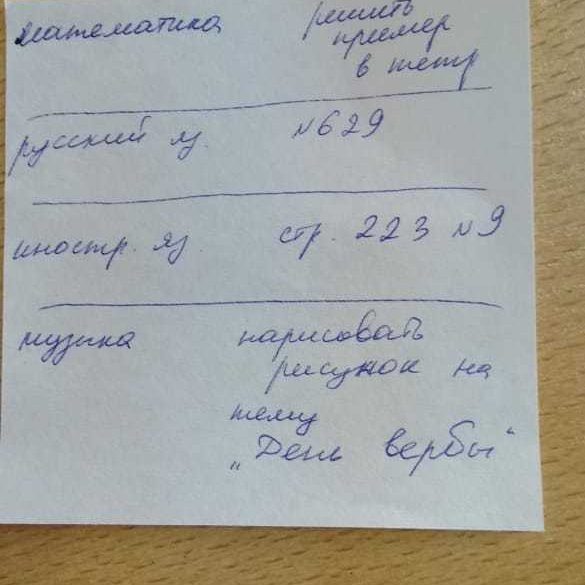 математика решить
пример
в тетр
русский яз. №629
иностр. яз. стр. 223 №9
музыка нарисовать
рисунок на
тему
„День вербы“